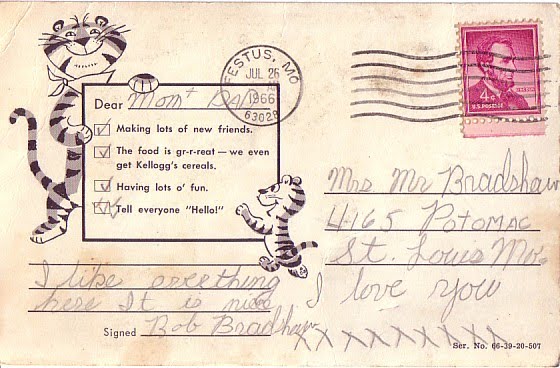 Dear Mom + Dad
Making lots of new friends.
The food is gr-r-reat — we even
get Kellogg's cereals.
Having lots o' fun.
Tell everyone "Hello!"
I like ereething
here It is nice
Signed Bob Bradshaw
FESTUS, MO
JUL 26
1966
63028
4¢
U.S. POSTAGE
Mrs Mr Bradshaw
4165 Potomac
St. Louis Mo.
I love you
xxxxxxxxx
Ser. No. 66-39-20-507